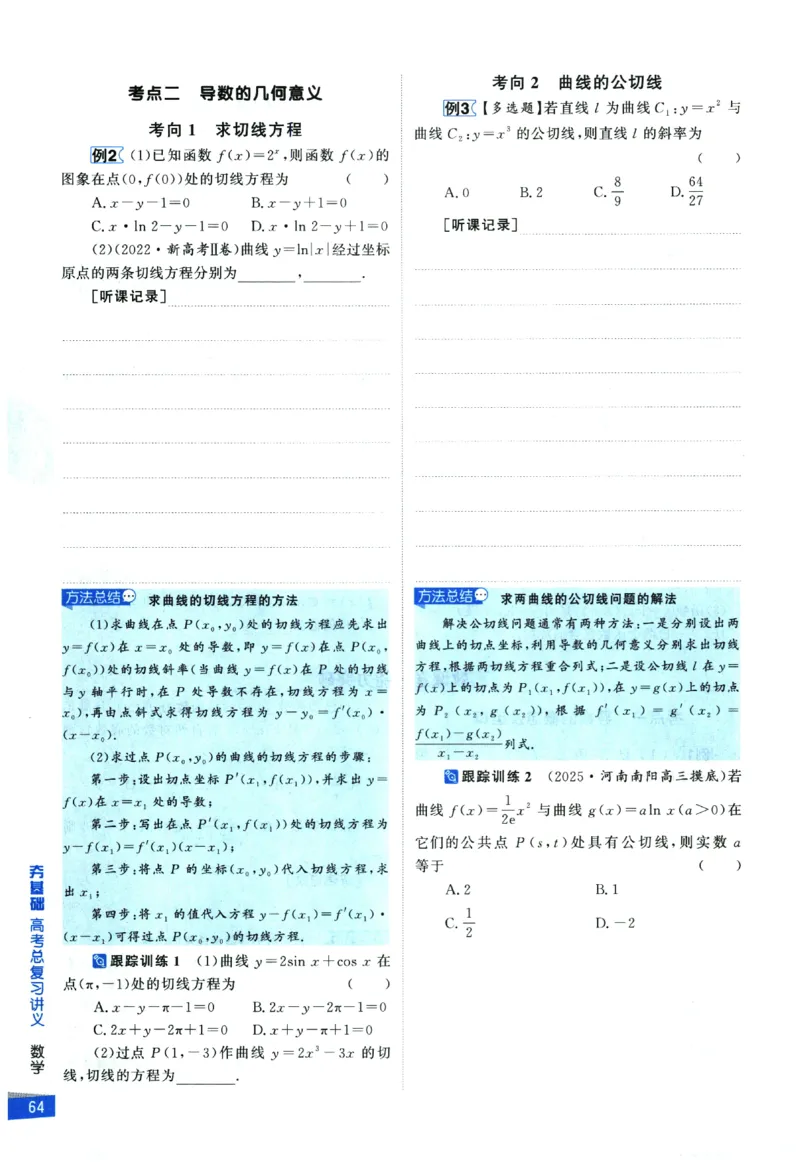 考点二 导数的几何意义
考向 1 求切线方程
例2 (1)已知函数 f(x)=2ˣ,则函数 f(x)的
图象在点(0,f(0))处的切线方程为 ( )
A.x-y-1=0 B.x-y+1=0
C.x·ln 2-y-1=0 D.x·ln 2-y+1=0
(2)(2022·新高考Ⅱ卷)曲线 y=ln|x|经过坐标
原点的两条切线方程分别为________,________.
[听课记录]
方法总结 求曲线的切线方程的方法
(1)求曲线在点 P(x₀,y₀)处的切线方程应先求出
y=f(x)在 x=x₀ 处的导数,即 y=f(x)在点 P(x₀,
f(x₀))处的切线斜率(当曲线 y=f(x)在 P 处的切线
与 y 轴平行时,在 P 处导数不存在,切线方程为 x=
x₀),再由点斜式求得切线方程为 y-y₀=f′(x₀)·
(x-x₀).
(2)求过点 P(x₀,y₀)的曲线的切线方程的步骤:
第一步:设出切点坐标 P′(x₁,f(x₁)),并求出 y=
f(x)在 x=x₁ 处的导数;
第二步:写出在点 P′(x₁,f(x₁))处的切线方程为
y-f(x₁)=f′(x₁)(x-x₁);
第三步:将点 P 的坐标(x₀,y₀)代入切线方程,求
出 x₁;
第四步:将 x₁ 的值代入方程 y-f(x₁)=f′(x₁)·
(x-x₁)可得过点 P(x₀,y₀)的切线方程.
跟踪训练 1 (1)曲线 y=2sin x+cos x 在
点(π,-1)处的切线方程为 ( )
A.x-y-π-1=0 B.2x-y-2π-1=0
C.2x+y-2π+1=0 D.x+y-π+1=0
(2)过点 P(1,-3)作曲线 y=2x³-3x 的切
线,切线的方程为________.
考向 2 曲线的公切线
例3【多选题】若直线 l 为曲线 C₁:y=x² 与
曲线 C₂:y=x³ 的公切线,则直线 l 的斜率为
( )
A.0 B.2 C.8/9 D.64/27
[听课记录]
方法总结 求两曲线的公切线问题的解法
解决公切线问题通常有两种方法:一是分别设出两
曲线上的切点坐标,利用导数的几何意义分别求出切线
方程,根据两切线方程重合列式;二是设公切线 l 在 y=
f(x)上的切点为 P₁(x₁,f(x₁)),在 y=g(x)上的切点
为 P₂(x₂,g(x₂)),根据 f′(x₁)=g′(x₂)=
(f(x₁)-g(x₂))/(x₁-x₂)列式.
跟踪训练 2 (2025·河南南阳高三摸底)若
曲线 f(x)=1/(2e)x² 与曲线 g(x)=aln x(a>0)在
它们的公共点 P(s,t)处具有公切线,则实数 a
等于 ( )
A.2 B.1
C.1/2 D.-2
夯基础 高考总复习讲义 数学
64